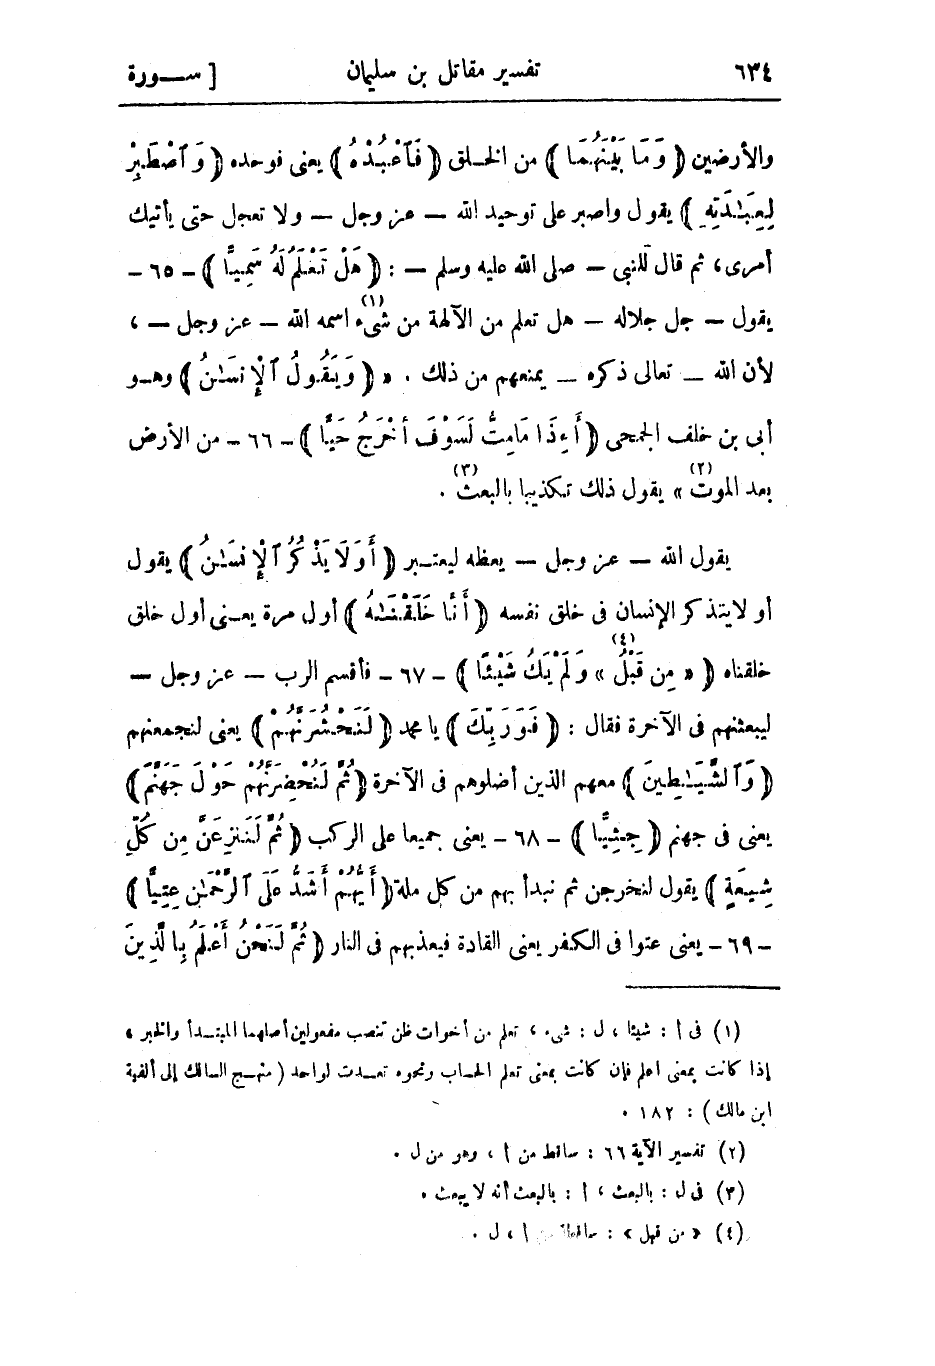 ٦٣٤ تفسير مقاتل بن سليمان [ ســورة
والأرضين ﴿ وَمَا بَيْنَهُمَا ﴾ من الخـلق ﴿ فَٱعْبُدْهُ ﴾ يعنى فوحده ﴿ وَٱصْطَبِرْ
لِعِبَـٰدَتِهِ ﴾ يقول واصبر على توحيد الله – عز وجل – ولا تعجل حتى يأتيك
أمرى، ثم قال للنبى – صلى الله عليه وسلم – : ﴿ هَلْ تَعْلَمُ لَهُ سَمِيًّا ﴾ – ٦٥ –
يقول – جل جلاله – هل تعلم من الآلهة من شىء (١) اسمه الله – عز وجل – ،
لأن الله – تعالى ذكره – يمنعهم من ذلك . « ﴿ وَيَقُولُ ٱلْإِنسَـٰنُ ﴾ وهـو
أبى بن خلف الجمحى ﴿ أَءِذَا مَامِتُّ لَسَوْفَ أُخْرَجُ حَيًّا ﴾ – ٦٦ – من الأرض
بعد الموت (٢) » يقول ذلك تكذيبا بالبعث (٣) .
يقول الله – عز وجل – يعظه ليعتـبر ﴿ أَوَلَا يَذْكُرُ ٱلْإِنسَـٰنُ ﴾ يقول
أو لايتذكر الإنسان فى خلق نفسه ﴿ أَنَّا خَلَقْنَـٰهُ ﴾ أول مرة يعـنى أول خلق
خلقناه ﴿ « مِن قَبْلُ (٤) » وَلَمْ يَكُ شَيْئًا ﴾ – ٦٧ – فأقسم الرب – عز وجل –
ليبعثنهم فى الآخرة فقال : ﴿ فَوَرَبِّكَ ﴾ يا محمد ﴿ لَنَحْشُرَنَّهُمْ ﴾ يعنى لنجمعنهم
﴿ وَٱلشَّيَـٰطِينَ ﴾ معهم الذين أضلوهم فى الآخرة ﴿ ثُمَّ لَنُحْضِرَنَّهُمْ حَوْلَ جَهَنَّمَ ﴾
يعنى فى جهنم ﴿ جِثِيًّا ﴾ – ٦٨ – يعنى جميعا على الركب ﴿ ثُمَّ لَنَنزِعَنَّ مِن كُلِّ
شِيعَةٍ ﴾ يقول لنخرجن ثم نبدأ بهم من كل ملة ﴿ أَيُّهُمْ أَشَدُّ عَلَى ٱلرَّحْمَـٰنِ عِتِيًّا ﴾
– ٦٩ – يعنى عتوا فى الكفر يعنى القادة فيعذبهم فى النار ﴿ ثُمَّ لَنَحْنُ أَعْلَمُ بِٱلَّذِينَ
(١) فى أ : شيئا ، ل : شىء ، تعلم من أخوات ظن تنصب مفعولين أصلهما المبتـدأ والخبر ،
إذا كانت بمعنى اعلم فإن كانت بمعنى تعلم الحساب ونحوه تعـدت لواحد ( منهـج السالك إلى ألفية
ابن مالك ) : ١٨٢ .
(٢) تفسير الآية ٦٦ : ساقط من أ ، وهو من ل .
(٣) فى ل : بالبعث ، أ : بالبعث أنه لا يبعث .
(٤) « من قبل » : ساقطة من أ ، ل .